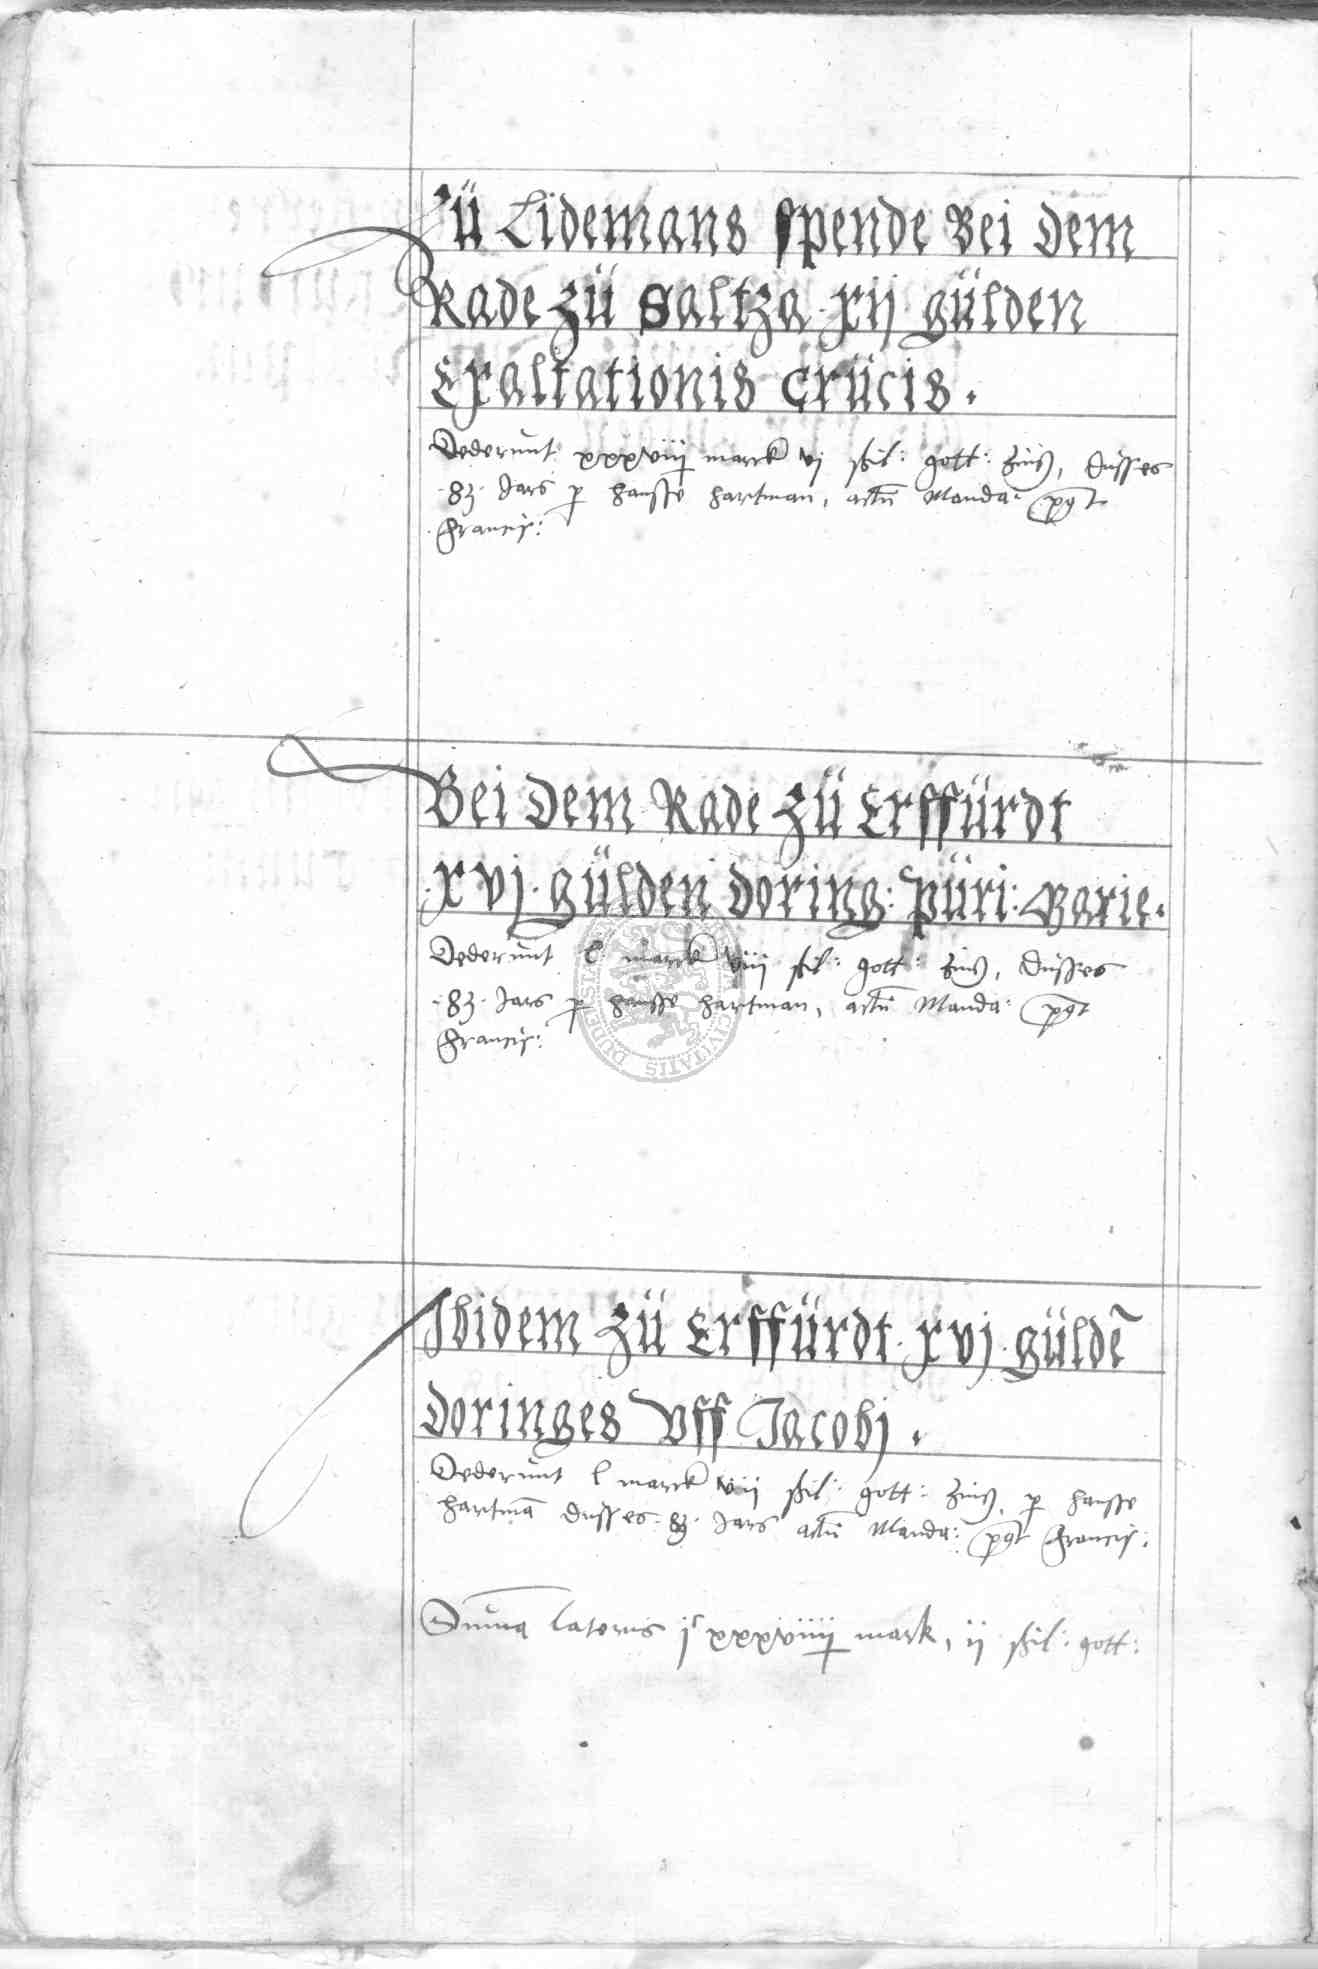 Zü Lidemans spende Bei dem
Rade zü Saltza · xij gülden
Exaltationis crücis ·
Dederunt xxxviiij marck vj ßil: gott: zinß, dusses
· 83 · Jars p hansse hartman, actu Manda:
Francis:
Bei dem Rade zü Erffürdt
· xvj · gülden doring: püri: Marie ·
Dederunt l marck viii ßil: gott: zinß, dusses
· 83 · Jars p hansse hartman, actu Manda:
Francis:
Ibidem zü Erffürdt · xvj · güldē
doringes Vff Jacobj ·
Dederunt l marck vii ßil: gott: zinß, p hansse
hartmā dusses · 83 · Jars actu Manda: Francis:
Suma lateris jc xxxviiij mark, ij ßil: gott:
CIVITATIS DUDERST